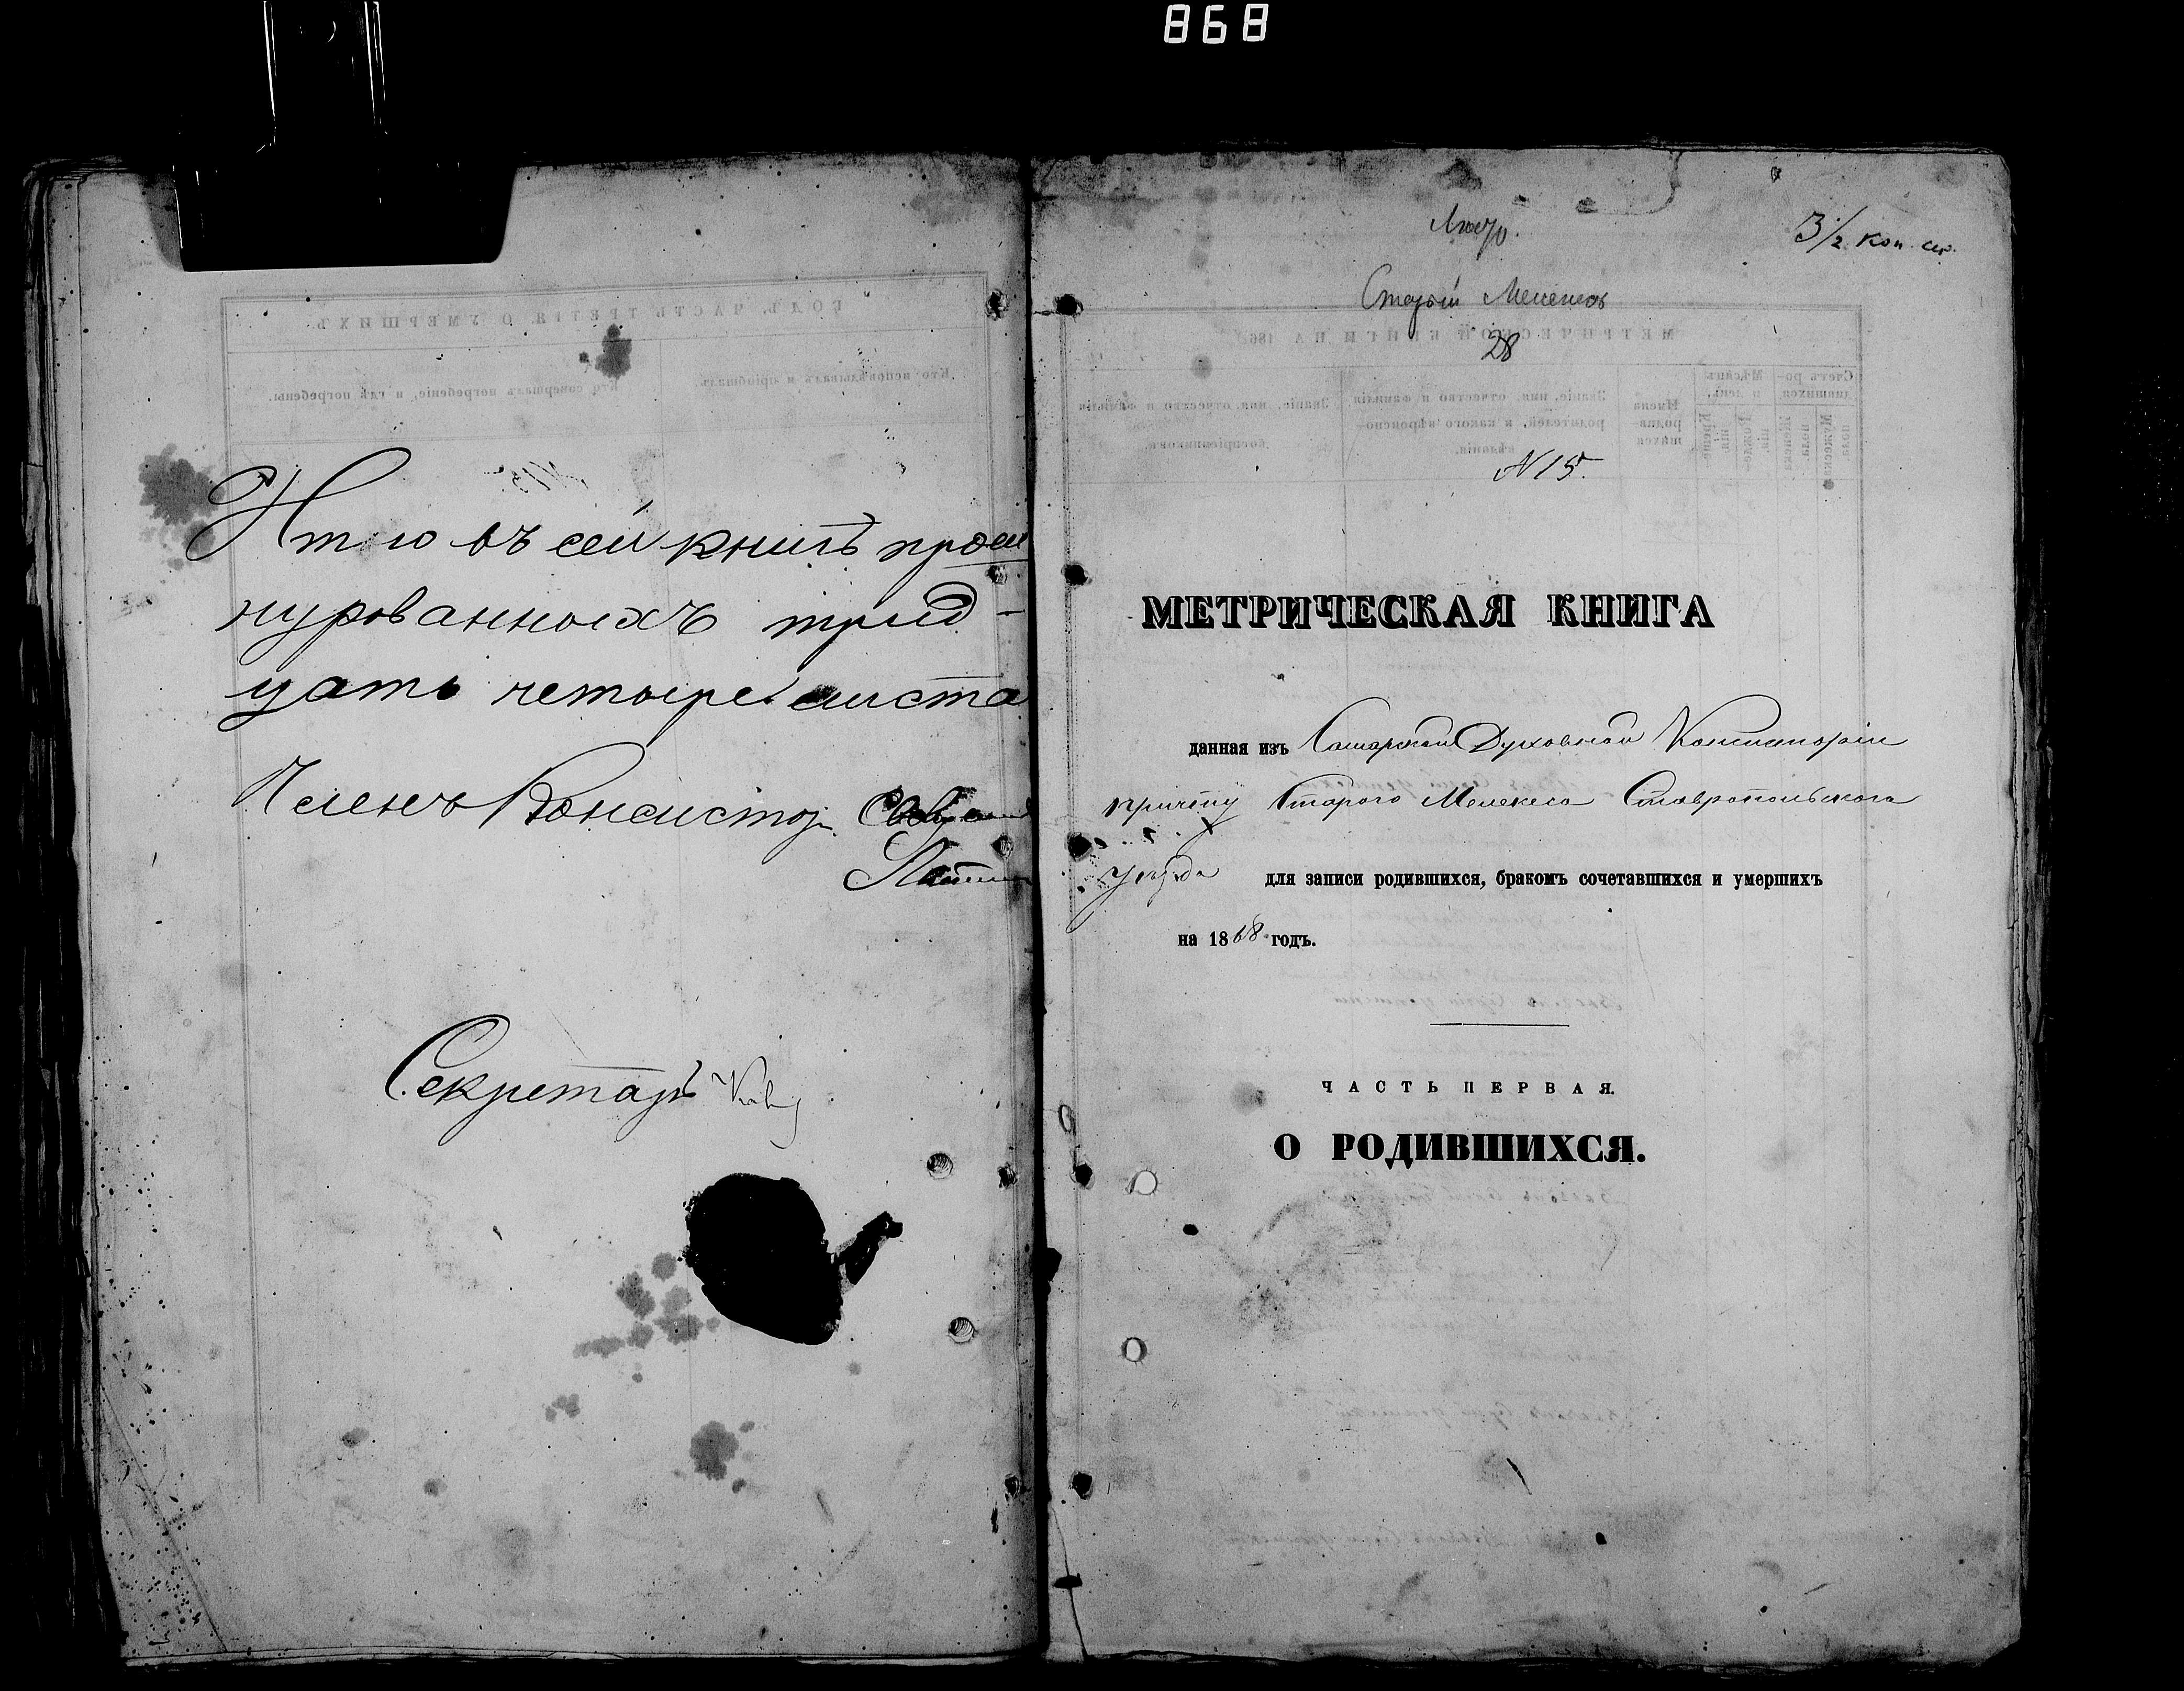 868
Итого въ сей книгѣ прош
нурованныхъ трид-
цать четыре листа
Членъ Консистор.
Секретарь
3 1/2 коп. сер.
Старый Мелекесъ
28
N 15.
МЕТРИЧЕСКАЯ КНИГА
данная изъ Самарской Духовной Консисторіи
причту Стараго Мелекеса Ставропольскаго
уѣзда для записи родившихся, бракомъ сочетавшихся и умершихъ
на 1868 годъ.
ЧАСТЬ ПЕРВАЯ.
О РОДИВШИХСЯ.